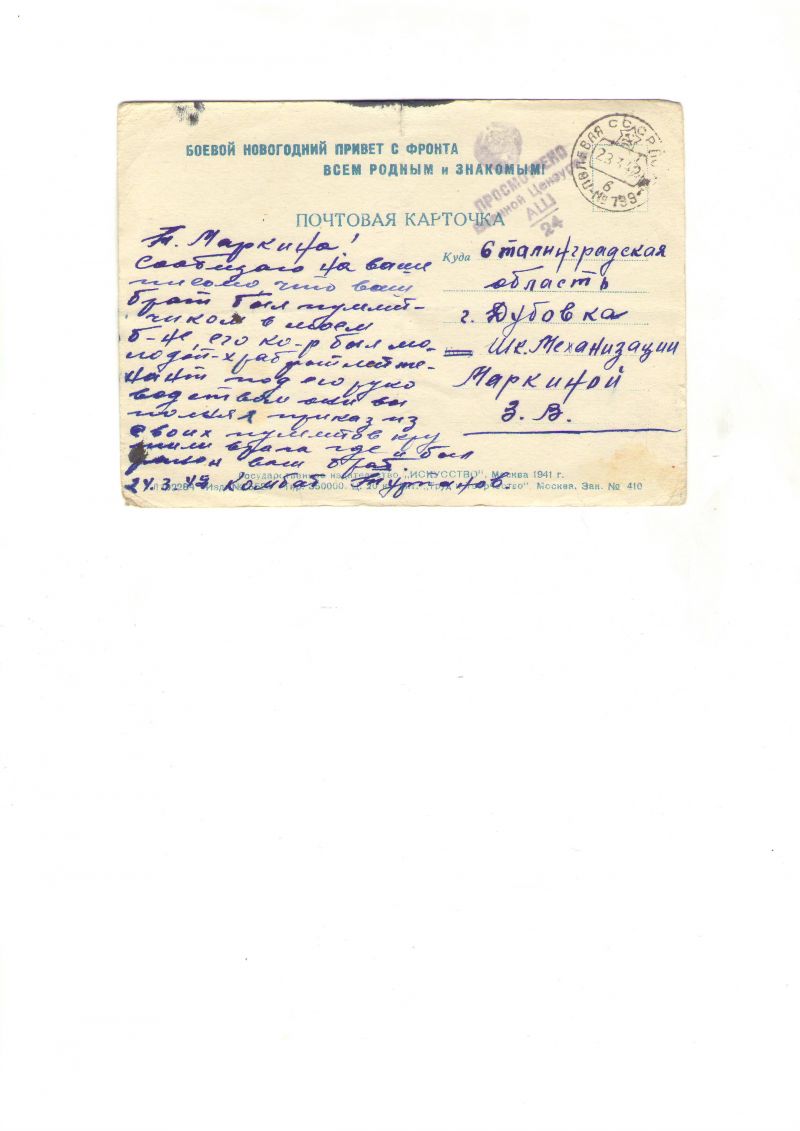 БОЕВОЙ НОВОГОДНИЙ ПРИВЕТ С ФРОНТА
ВСЕМ РОДНЫМ и ЗНАКОМЫМ!
ПРОСМОТРЕНО
Военной Цензурой
АШ
24
ПОЛЕВАЯ СССР
23.3.42
6
№ 799
ПОЧТОВАЯ КАРТОЧКА
Т. Маркина!
Сообщаю на ваше
письмо, что ваш
брат был пулемёт-
чиком в моем
б-не, его ко-р был мо-
лодой-храбр лейте-
нант под его руко
водством они вы
полняя приказ из
своих пулемтов кру
шили врага где и был
ранен ваш брат
24.3.42 комбат
Куда Сталинградская
область
г. Дубовка
Шк. Механизации
Маркиной
З. В.
Государственное издательство „ИСКУССТВО“. Москва 1941 г.
Москва. Зак. № 410